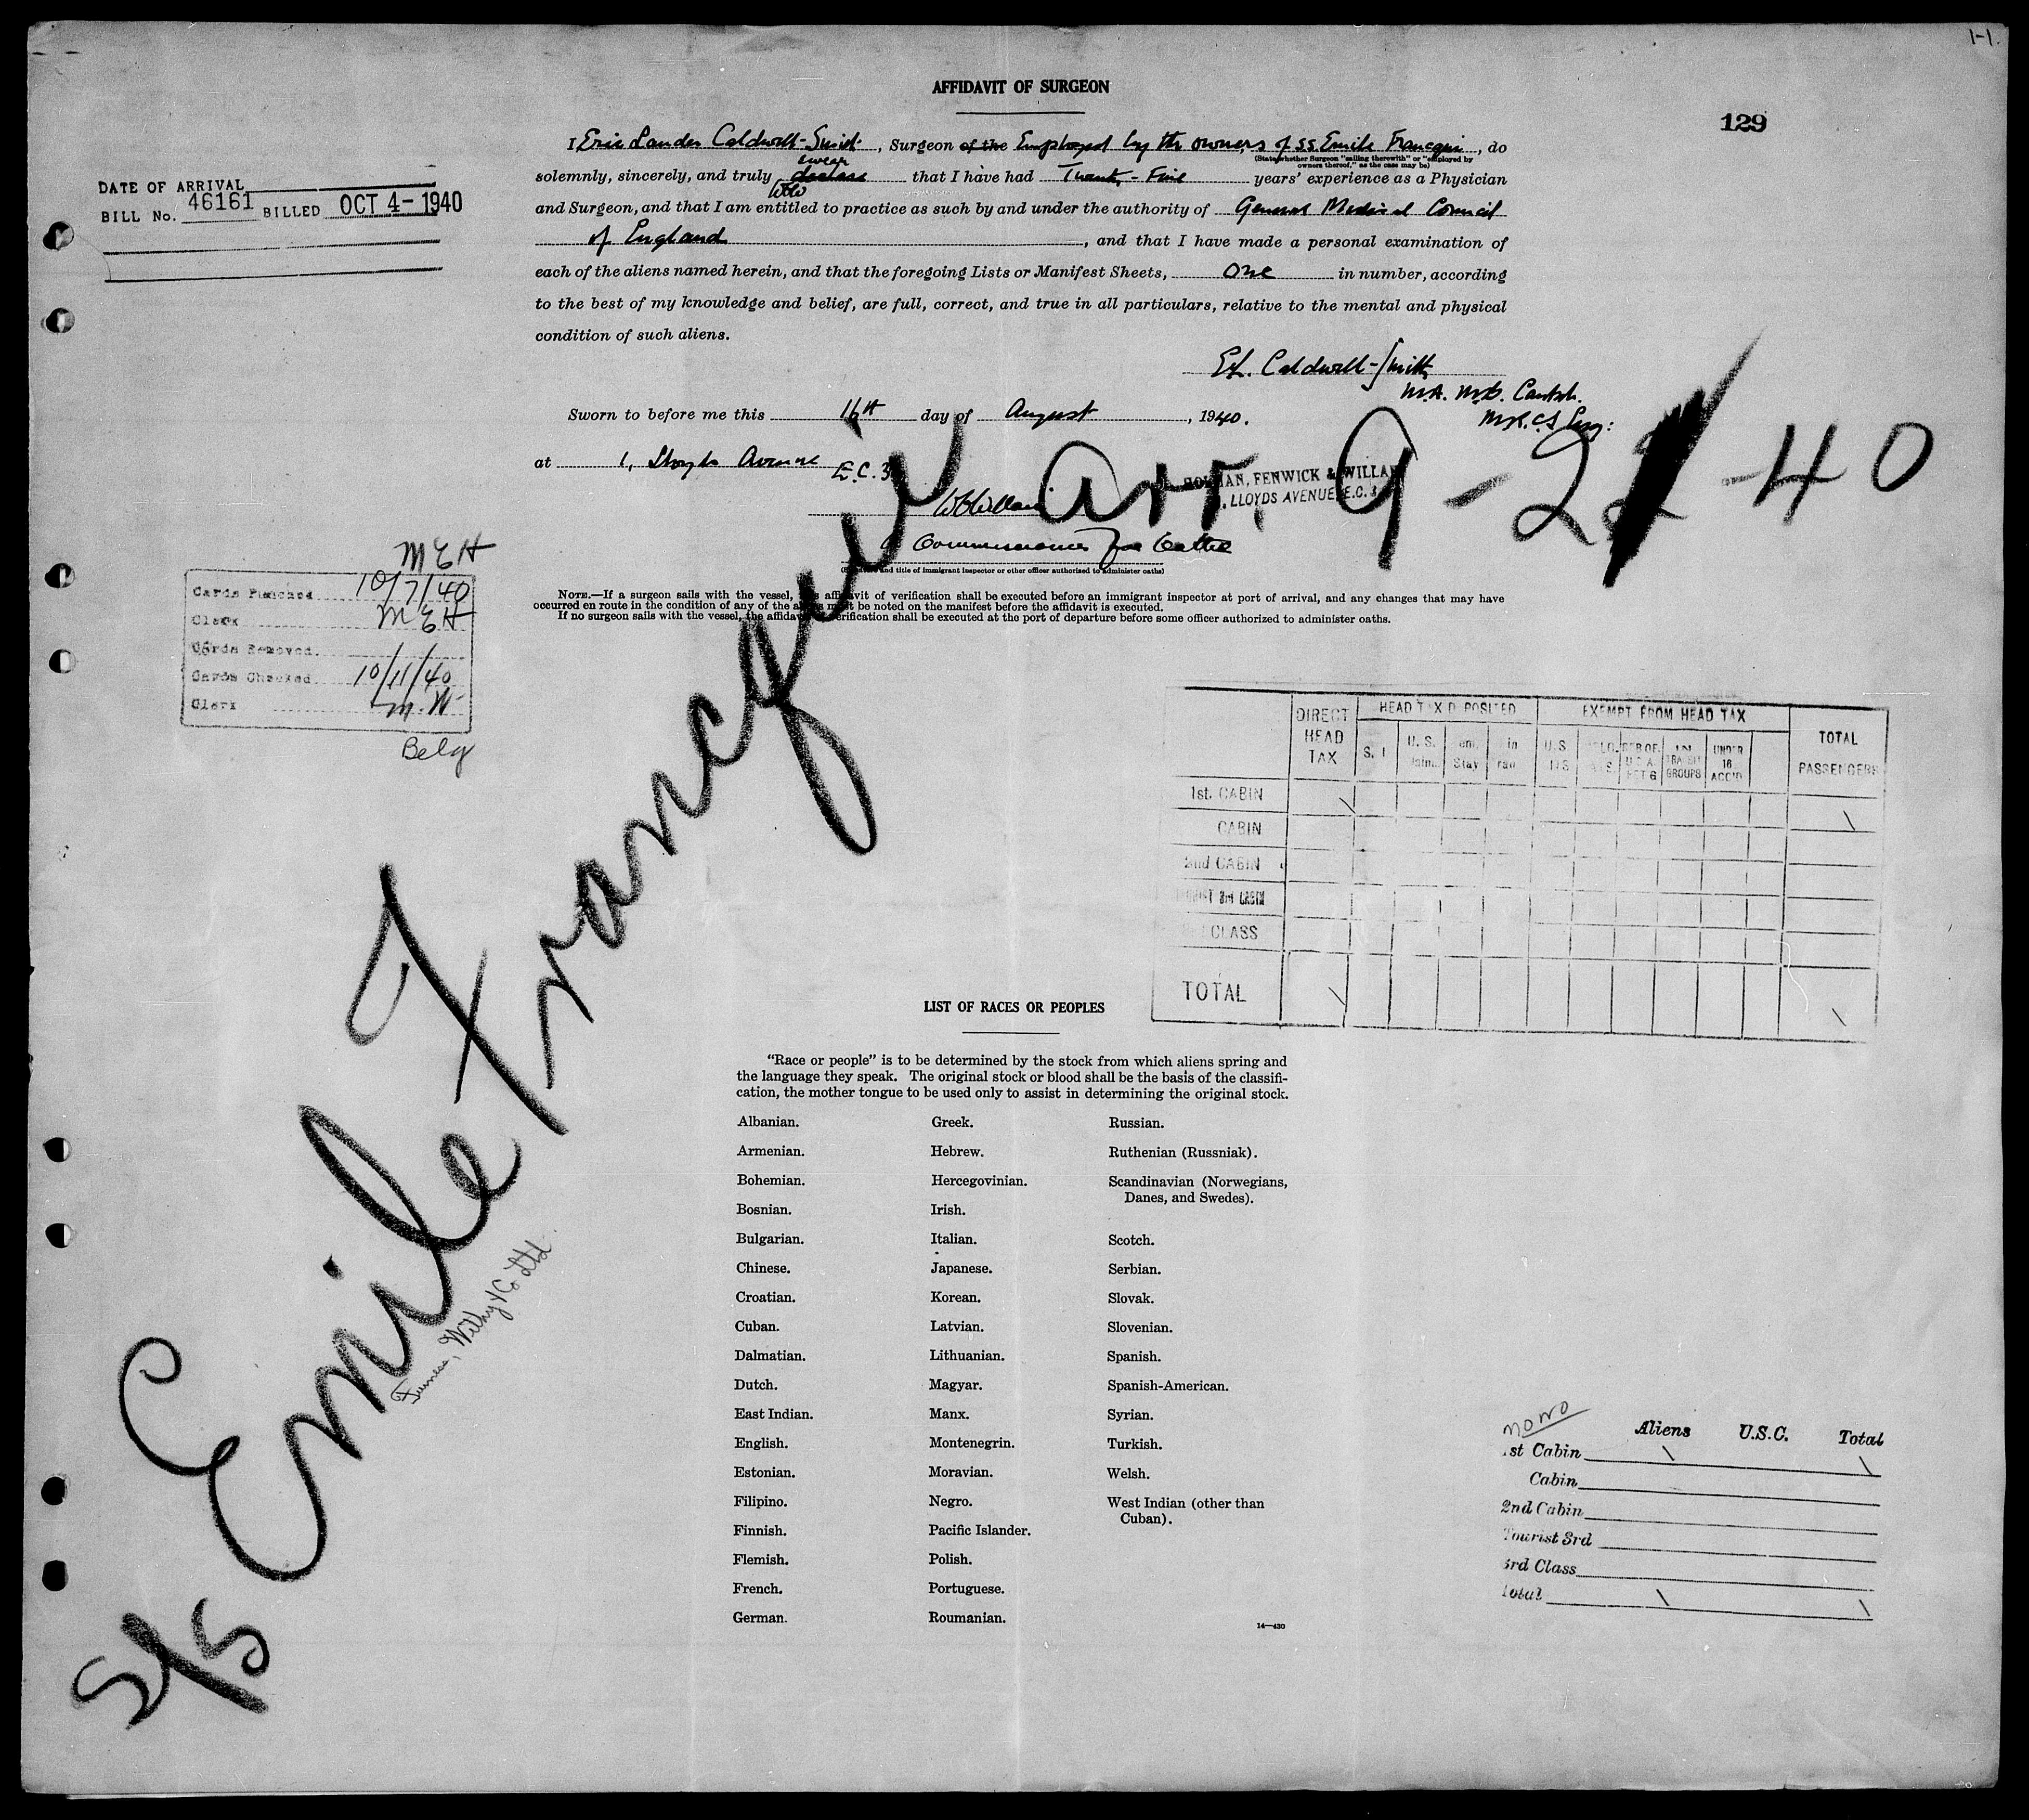 1-1.
AFFIDAVIT OF SURGEON
129
I Eric Lander Caldwell-Smith, Surgeon of the Employed by the owners of SS. Emile Francqui, do
(State whether Surgeon "sailing therewith" or "employed by
owners thereof," as the case may be)
swear
solemnly, sincerely, and truly declare that I have had Twenty-Five years' experience as a Physician
and Surgeon, and that I am entitled to practice as such by and under the authority of General Medical Council
of England, and that I have made a personal examination of
each of the aliens named herein, and that the foregoing Lists or Manifest Sheets, one in number, according
to the best of my knowledge and belief, are full, correct, and true in all particulars, relative to the mental and physical
condition of such aliens.
E.L. Caldwell-Smith
M.A. M.B. Cantab.
M.R.C.S. Eng:
Sworn to before me this 16th day of August, 1940.
at 1, Lloyds Avenue E.C.3
HOLMAN, FENWICK & WILLAN
1, LLOYDS AVENUE, E.C.3
A Commissioner for Oaths
(Signature and title of immigrant inspector or other officer authorized to administer oaths)
NOTE.—If a surgeon sails with the vessel, the affidavit of verification shall be executed before an immigrant inspector at port of arrival, and any changes that may have
occurred en route in the condition of any of the aliens must be noted on the manifest before the affidavit is executed.
If no surgeon sails with the vessel, the affidavit of verification shall be executed at the port of departure before some officer authorized to administer oaths.
DATE OF ARRIVAL
BILL No. 46161 BILLED OCT 4-1940
Arr. 9-2 -40
S/S Emile Francqui
Furness, Withy & Co Ltd
MEH
Cards Punched 10/7/40
Clerk MEH
Cards Removed.
Cards Checked 10/11/40
Clerk M.W
Belg
DIRECT HEAD TAX
HEAD TAX DEPOSITED
EXEMPT FROM HEAD TAX
TOTAL PASSENGERS
S. I
U. S.
Stay
U.S
IN TRANSIT GROUPS
UNDER 16 ACC'D
1st. CABIN \ \
CABIN
2nd CABIN
3rd CABIN
CLASS
TOTAL \ \
LIST OF RACES OR PEOPLES
"Race or people" is to be determined by the stock from which aliens spring and
the language they speak. The original stock or blood shall be the basis of the classifi-
cation, the mother tongue to be used only to assist in determining the original stock.
Albanian. Greek. Russian.
Armenian. Hebrew. Ruthenian (Russniak).
Bohemian. Hercegovinian. Scandinavian (Norwegians,
Danes, and Swedes).
Bosnian. Irish.
Bulgarian. Italian. Scotch.
Chinese. Japanese. Serbian.
Croatian. Korean. Slovak.
Cuban. Latvian. Slovenian.
Dalmatian. Lithuanian. Spanish.
Dutch. Magyar. Spanish-American.
East Indian. Manx. Syrian.
English. Montenegrin. Turkish.
Estonian. Moravian. Welsh.
Filipino. Negro. West Indian (other than
Cuban).
Finnish. Pacific Islander.
Flemish. Polish.
French. Portuguese.
German. Roumanian.
14—430
Aliens U.S.C. Total
1st Cabin \ \
Cabin
2nd Cabin
Tourist 3rd
3rd Class
Total \ \